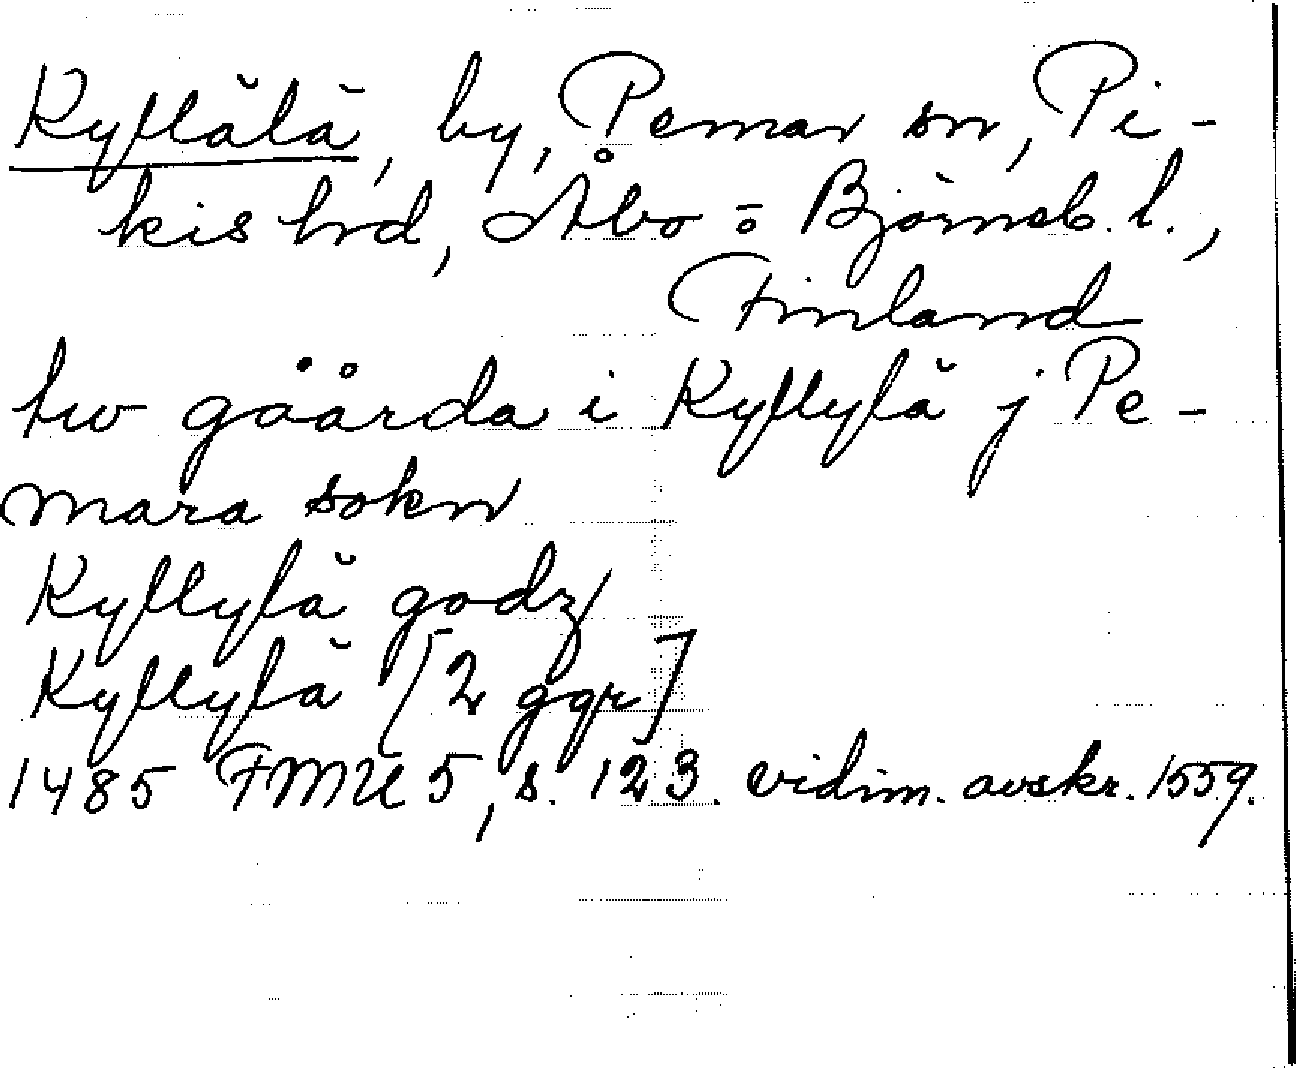 Kyllälä, by, Pemar sn, Pi-
kis hrd, Åbo o Björneb. l.,
Finland
tw göårda i Kyllylä j Pe-
mara sokn
Kyllylä godz
Kyllylä [2 ggr]
1485 FMU 5, s. 123. vidim. avskr. 1559.